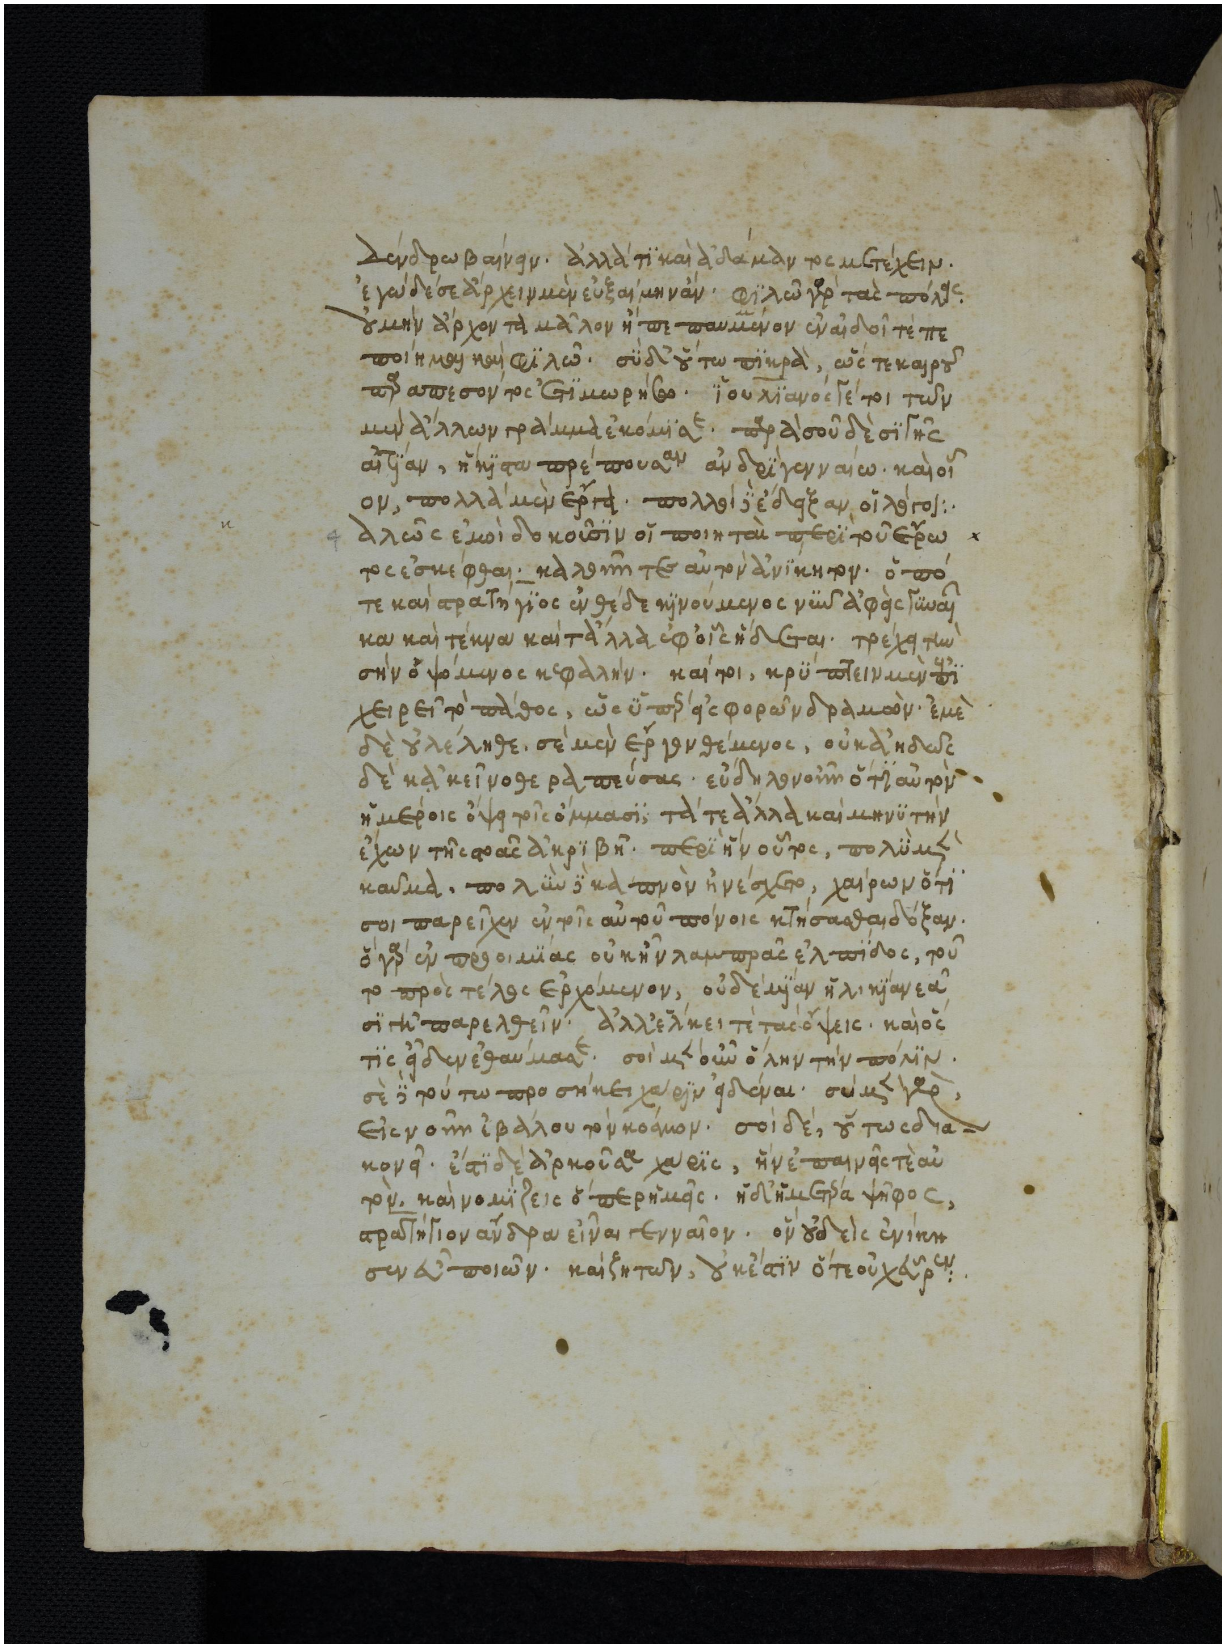 δένδρω βαίνειν. ἀλλά τι καὶ ἀδάμαντος μετέχειν.
ἐγὼ δέ σε ἄρχειν μὲν εὐξαίμην ἄν. φιλῶ γὰρ τὰς πόλεις.
οὐ μὴν ἄρχοντα μᾶλλον ἢ πεπαυμένον ἐν αἰδοῖ τε πε
ποίημαι καὶ φιλῶ. σὺ δ' οὕτω πικρὰ, ὥς τε καιροῦ
παραπεσόντος
μὲν ἄλλων γράμματα ἐκόμισε. παρὰ σοῦ δὲ σιγῆς
αἰτίαν, ἥκιστα πρέπουσαν ἀνδρὶ γενναίω. καὶ οἷ
ον, πολλὰ μὲν ἔργα. πολλοὶ δὲ ἔδειξαν οἱ λόγοι:
αλῶς ἐμοὶ δοκοῦσιν οἱ ποιηταὶ περὶ τοῦ ἔρω
τος ἐσκέφθαι. καλοῦσι τε αὐτὸν ἀνίκητον. ὁπό
τε καὶ στρατήγιος ἐνθέδε κινούμενος νῦν ἀφεὶς γυναῖ
κα καὶ τέκνα καὶ τἄλλα ἐφ' οἷς ἥδεται. τρέχει τὴν
σὴν ὀψόμενος κεφαλήν. καί τοι, κρύπτειν μὲν ἐπι
χειρεῖ τὸ πάθος, ὡς ὑπὲρ εἰσφορῶν δραμών. ἐμὲ
δὲ οὐ λέληθε. σὲ μὲν
δὲ κἀκεῖνο θεραπεύσας. εὔδηλον οὖν ὅτι αὐτὸν
ἡμέροις ὄψει τοῖς ὄμμασι, τά τε ἄλλα καὶ μηνυτὴν
ἔχων τῆς σφᾶς ἀκριβῆ. περὶ ἣν οὗτος, πολὺ μὲν
καῦμα. πολὺν δὲ καπνὸν ἠνέσχετο, χαίρων ὅτι
σοι παρεῖχεν ἐν τοῖς αὐτοῦ πόνοις κτήσασθαι δόξαν.
ὃ γὰρ ἐν προοιμίοις οὐκ ἦν λαμπρᾶς ἐλπίδος, τοῦ
το πρὸς τέλος ἐρχόμενον, οὐδεμίαν ἡλικίαν εἴα
σιγῇ παρελθεῖν. ἀλλ' εἷλκει τε τὰς ὄψεις. καὶ ὅς
τις εἶδεν ἐθαύμασε. σοὶ μὲν οὖν ὅλην τὴν πόλιν.
σὲ δὲ τούτω προσήκει χάριν εἰδέναι. σὺ μὲν γὰρ,
εἰς νοῦν ἐβάλου τὸν κόσμον. σοὶ δέ, οὗτος δια
κονεῖ. ἔστι δὲ ἀρκοῦσα χάρις, ἢν ἐπαινῇς τε αὐ
τὸν. καὶ νομίζεις ὅπερ ἡμεῖς. ἡ δ' ἡμετέρα ψῆφος,
στρατήγιον ἄνδρα εἶναι γενναῖον. ὃν οὐδεὶς ἐνίκη
σεν εὖ ποιῶν. καὶ ζητῶν, οὐκ ἔστιν ὅτε οὐχ εὗρεν: